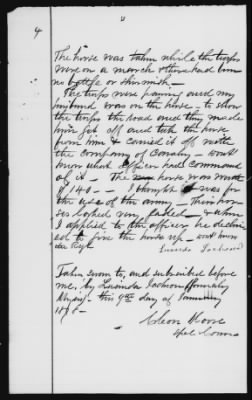 4
The horse was taken while the troops
were on a march there had been
no battle or skirmish.
The troops were passing and my
husband was on the horse to show
the troops the road and they made
him get off and took the horse
from him & carried it off with
the company of Cavalry – don't
know what officer had command
of it – The horse was worth
$140 – I thought it was for
the use of the army – Their hor-
ses looked very & when
I applied to the officer he declin-
ed to give the horse up – don't know
his Regt.
Lucinda Jackson
Taken sworn to, and subscribed before
me, by Lucinda Jackson (formerly
this 9th day of January
187
Moore
Spl Comr